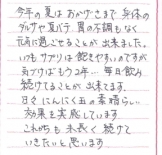 今年の夏はおかげさまで身体の
ダルサや夏バテ、胃の不調もなく
元気に過ごせることが出来ました。
いつもサプリは飽きやすいのですが
気づけばもう2年… 毎日飲み
続けることが出来てます。
日々にんにく玉の素晴らしい
効果を実感しています
これからも末長く続けて
いきたいと思います